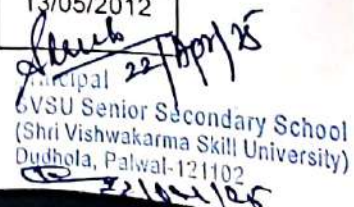 13/05/2012
22/Apr/25
Principal
SVSU Senior Secondary School
(Shri Vishwakarma Skill University)
Dudhola, Palwal-121102